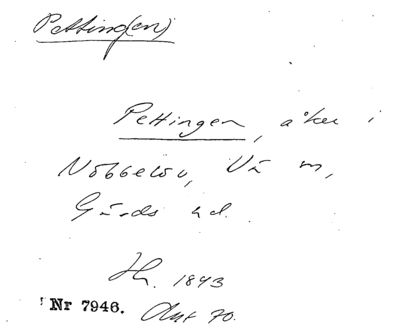 Petting(en)
Pettingen, åker i
Nöbbelöv, Vä m,
Gärds hd.
1843
Nr 7946. Akt 70.